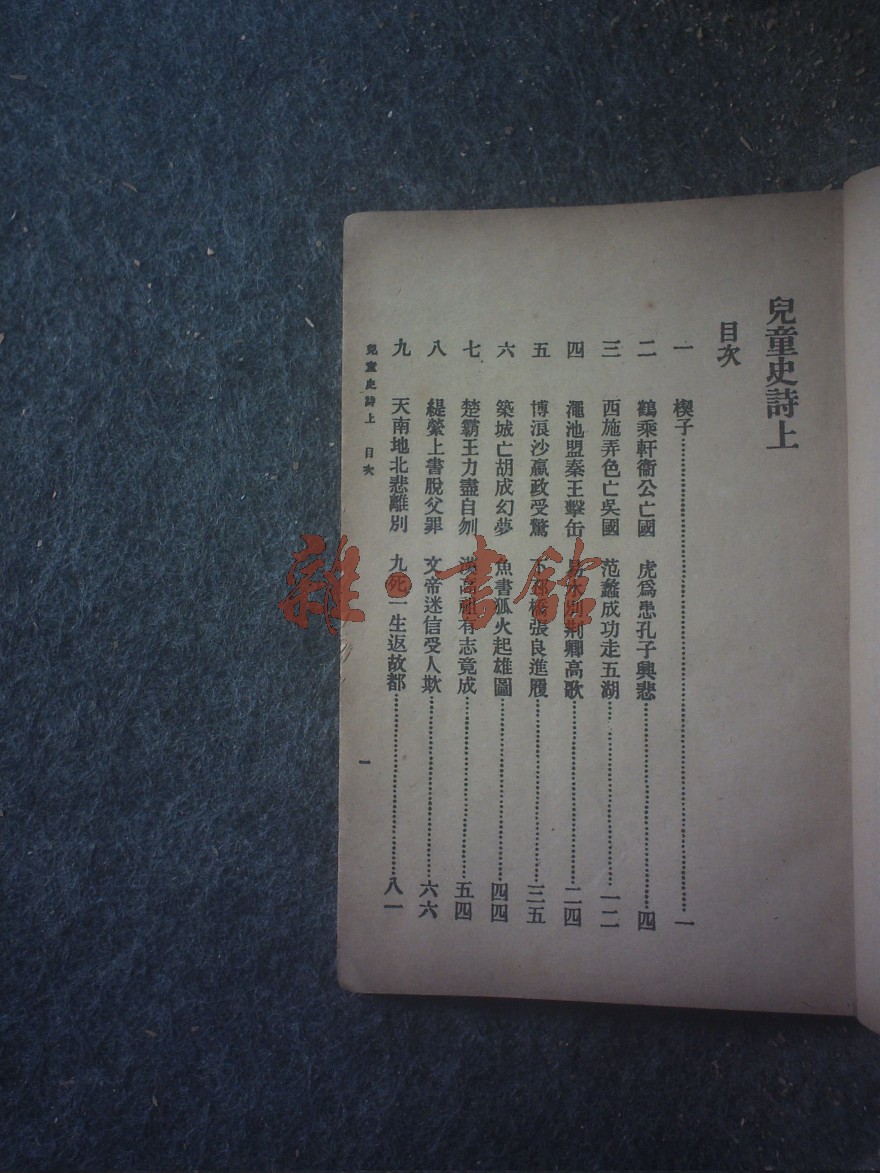 兒童史詩上
目次
一 楔子 一
二 鶴乘軒衞公亡國 虎爲患孔子興悲 四
三 西施弄色亡吳國 范蠡成功走五湖 一二
四 澠池盟秦王擊缶 易水別荆卿高歌 二四
五 博浪沙嬴政受驚 下邳橋張良進履 三五
六 築城亡胡成幻夢 魚書狐火起雄圖 四四
七 楚霸王力盡自刎 漢高祖有志竟成 五四
八 緹縈上書脫父罪 文帝迷信受人欺 六六
九 天南地北悲離別 九死一生返故都 八一
兒童史詩上 目次
一
雜·書館